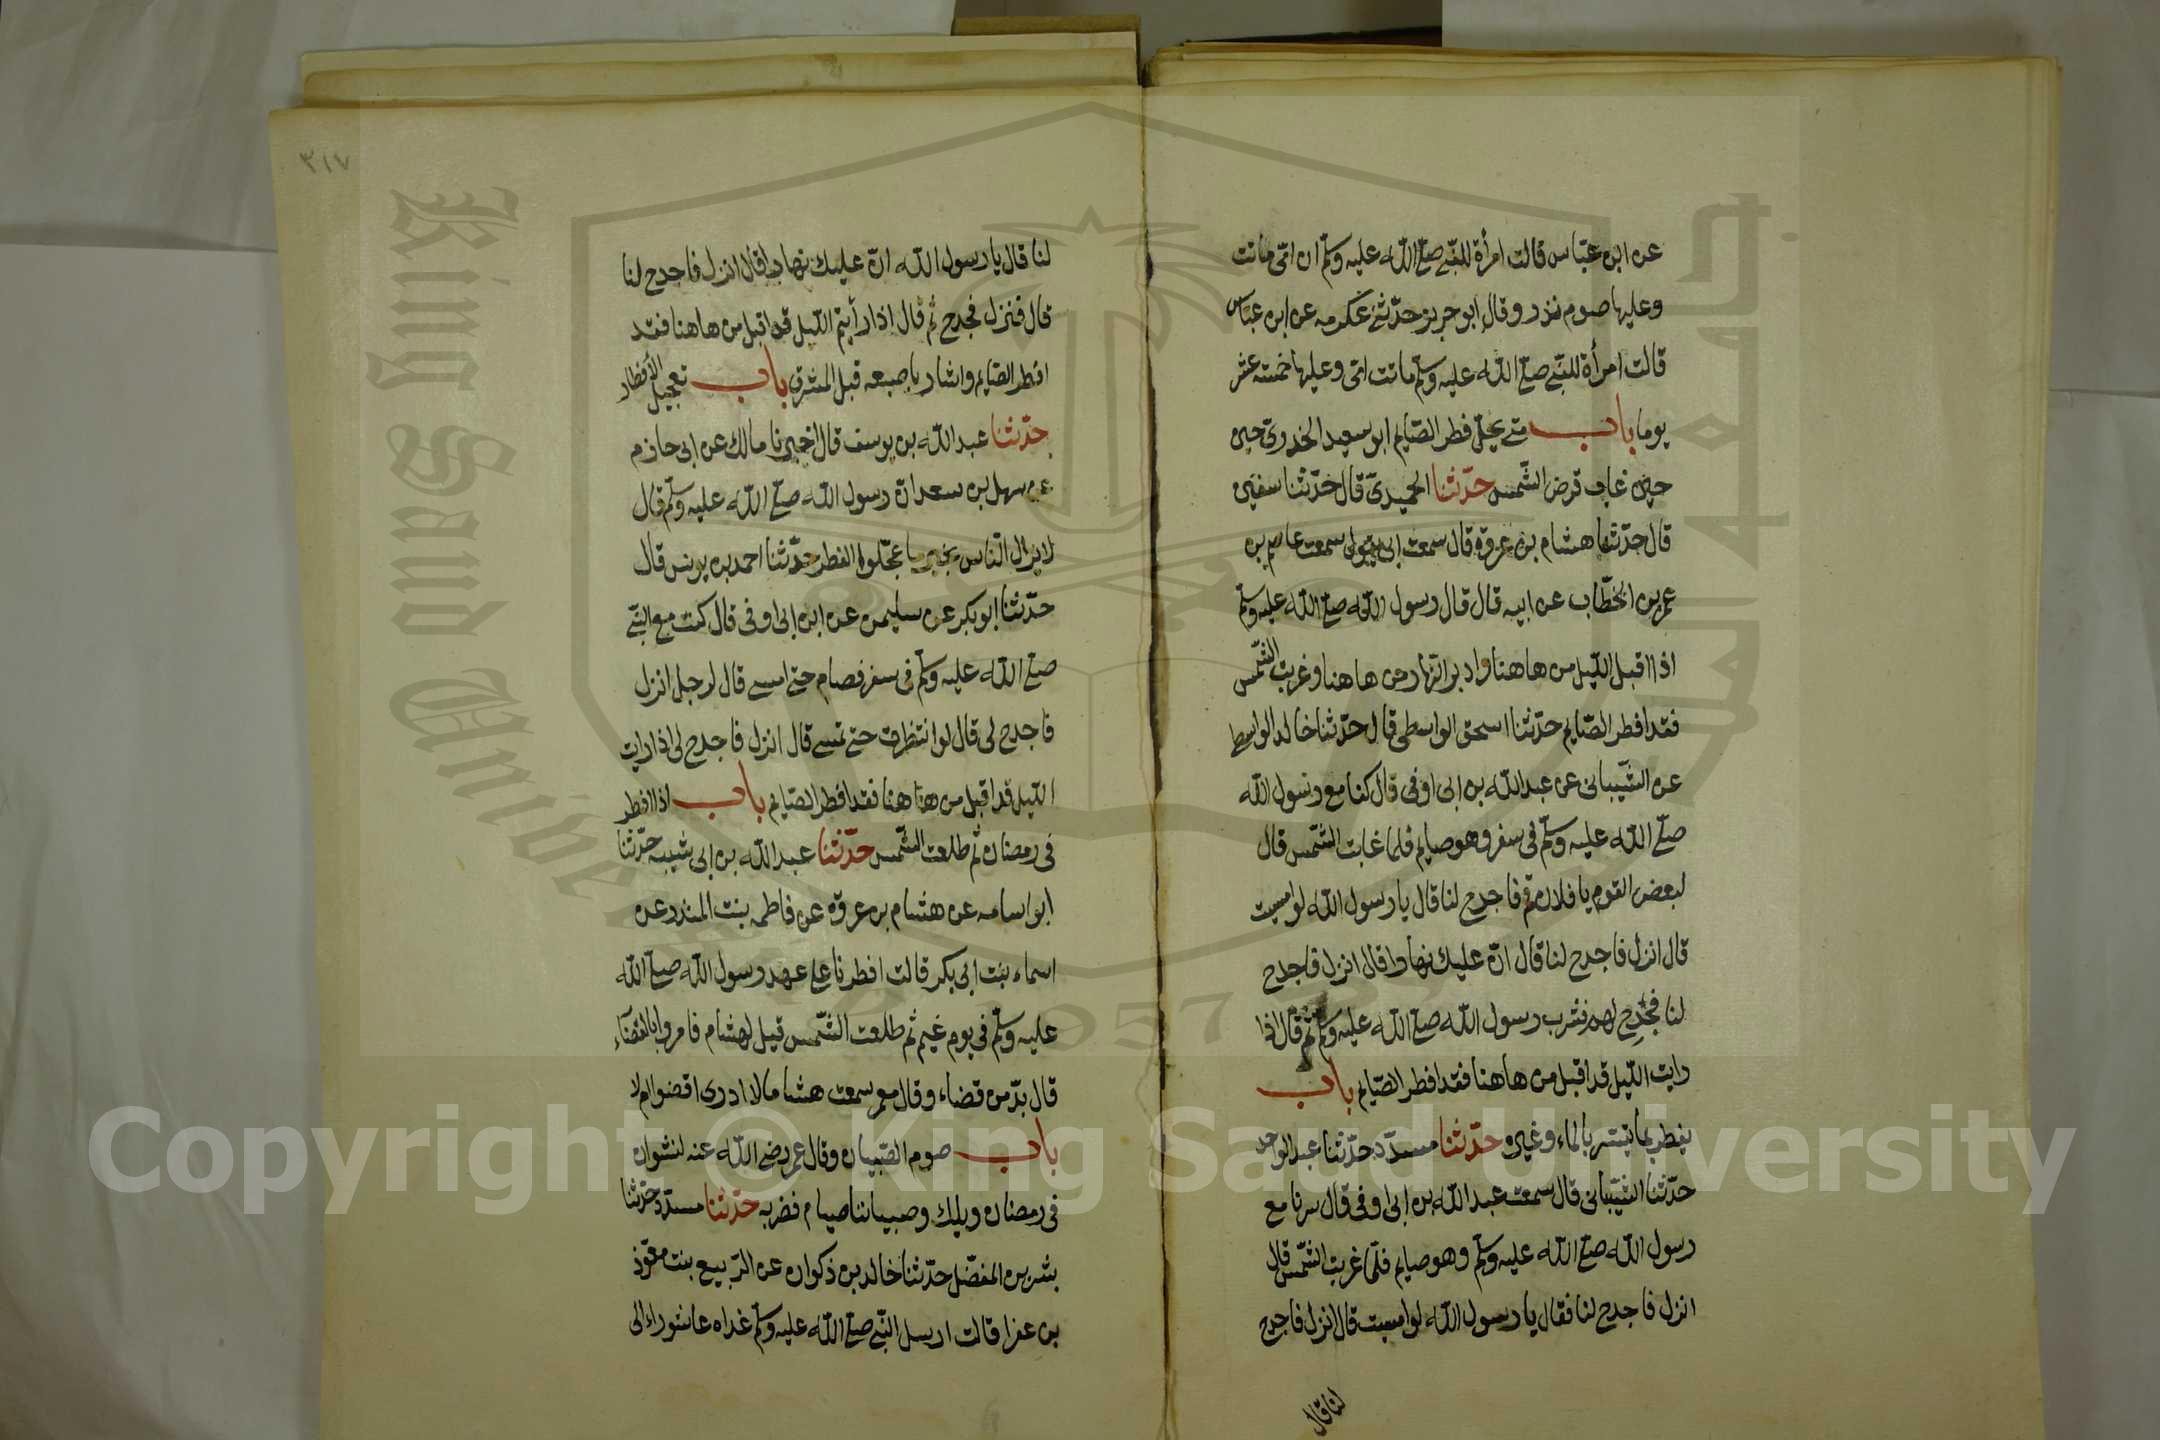 عن ابن عبّاس قالت امرأة للنّبى صلى الله عليه وسلم ان امّى ماتت
وعليها صوم نذر وقال ابو جرير حدّثنى عكرمه عن ابن عبّاس
قالت امرأة للنّبى صلى الله عليه وسلم ماتت امّى وعليها خمسة عشر
يوما باب متى يحلّ فطر الصّايم ابو سعيد الخدرىّ حين
حين غاب قرض الشّمس حدّثنا الحميدىّ قال حدّثنا سفين
قال حدّثنا هشام بن عروة قال سمعت ابى يقول سمعت عاصم بن
عمر بن الخطّاب عن ابيه قال قال رسول الله صلى الله عليه وسلم
اذا اقبل اللّيل من هاهنا وادبر النّهار من هاهنا وغربت الشّمس
فقد افطر الصّايم حدّثنا اسحق الواسطى قال حدّثنا خالد الواسطى
عن الشّيبانى عن عبد الله بن ابى اوفى قال كنا مع رسول الله
صلى الله عليه وسلم فى سفر وهو صايم فلما غابت الشّمس قال
لبعض القوم يا فلان قم فاجدح لنا قال يا رسول الله لو امسيت
قال انزل فاجدح لنا قال انّ عليك نهارا قال انزل فاجدح
لنا فجدح لهم فشرب رسول الله صلى الله عليه وسلم ثم قال اذا
رايت اللّيل قد اقبل من هاهنا فقد افطر الصّايم باب
يفطر بما تيسّر بالماء وغيره حدّثنا مسدّد حدّثنا عبد الواحد
حدّثنا الشّيبانى قال سمعت عبد الله بن ابى اوفى قال سرنا مع
رسول الله صلى الله عليه وسلم وهو صايم فلمّا غربت الشّمس قال
انزل فاجدح لنا فقال يا رسول الله لو امسيت قال انزل فاجدح
لنا قال
٣١٧
لنا قال يا رسول الله انّ عليك نهارا قال انزل فاجدح لنا
قال فنزل فجدح ثم قال اذا رأيتم اللّيل قد اقبل من هاهنا فقد
افطر الصّايم واشار باصبعه قبل المشرق باب تعجيل الأفطار
حدّثنا عبد الله بن يوسف قال اخبرنا مالك عن ابى حازم
عن سهل بن سعد انّ رسول الله صلى الله عليه وسلم قال
لا يزال النّاس بخير ما عجّلوا الفطر حدّثنا احمد بن يونس قال
حدّثنا ابو بكر عن سليمن عن ابن ابى اوفى قال كنت مع النّبى
صلى الله عليه وسلم فى سفر فصام حتى امسى قال لرجل انزل
فاجدح لى قال لو انتظرت حتى تمسى قال انزل فاجدح لى اذا رايت
اللّيل قد اقبل من هاهنا فقد افطر الصّايم باب اذا افطر
فى رمضان ثم طلعت الشّمس حدّثنا عبد الله بن ابى شيبه حدّثنا
ابو اسامه عن هشام بن عروة عن فاطمه بنت المنذر عن
اسماء بنت ابى بكر قالت افطرنا على عهد رسول الله صلى الله
عليه وسلم فى يوم غيم ثم طلعت الشّمس قيل لهشام فامروا بالقضآء
قال بدّ من قضاء وقال معمر سمعت هشاما لا ادرى اقضوا ام لا
باب صوم الصّبيان وقال عمر رضى الله عنه لنشوان
فى رمضان ويلك وصبياننا صيام فضربه حدّثنا مسدّد حدّثنا
بشر بن المفضّل حدّثنا خالد بن ذكوان عن الرّبيع بنت معوّذ
بن عفرا قالت ارسل النّبى صلى الله عليه وسلم غداه عاشوراء الى
King Saud University
1957
Copyright © King Saud University